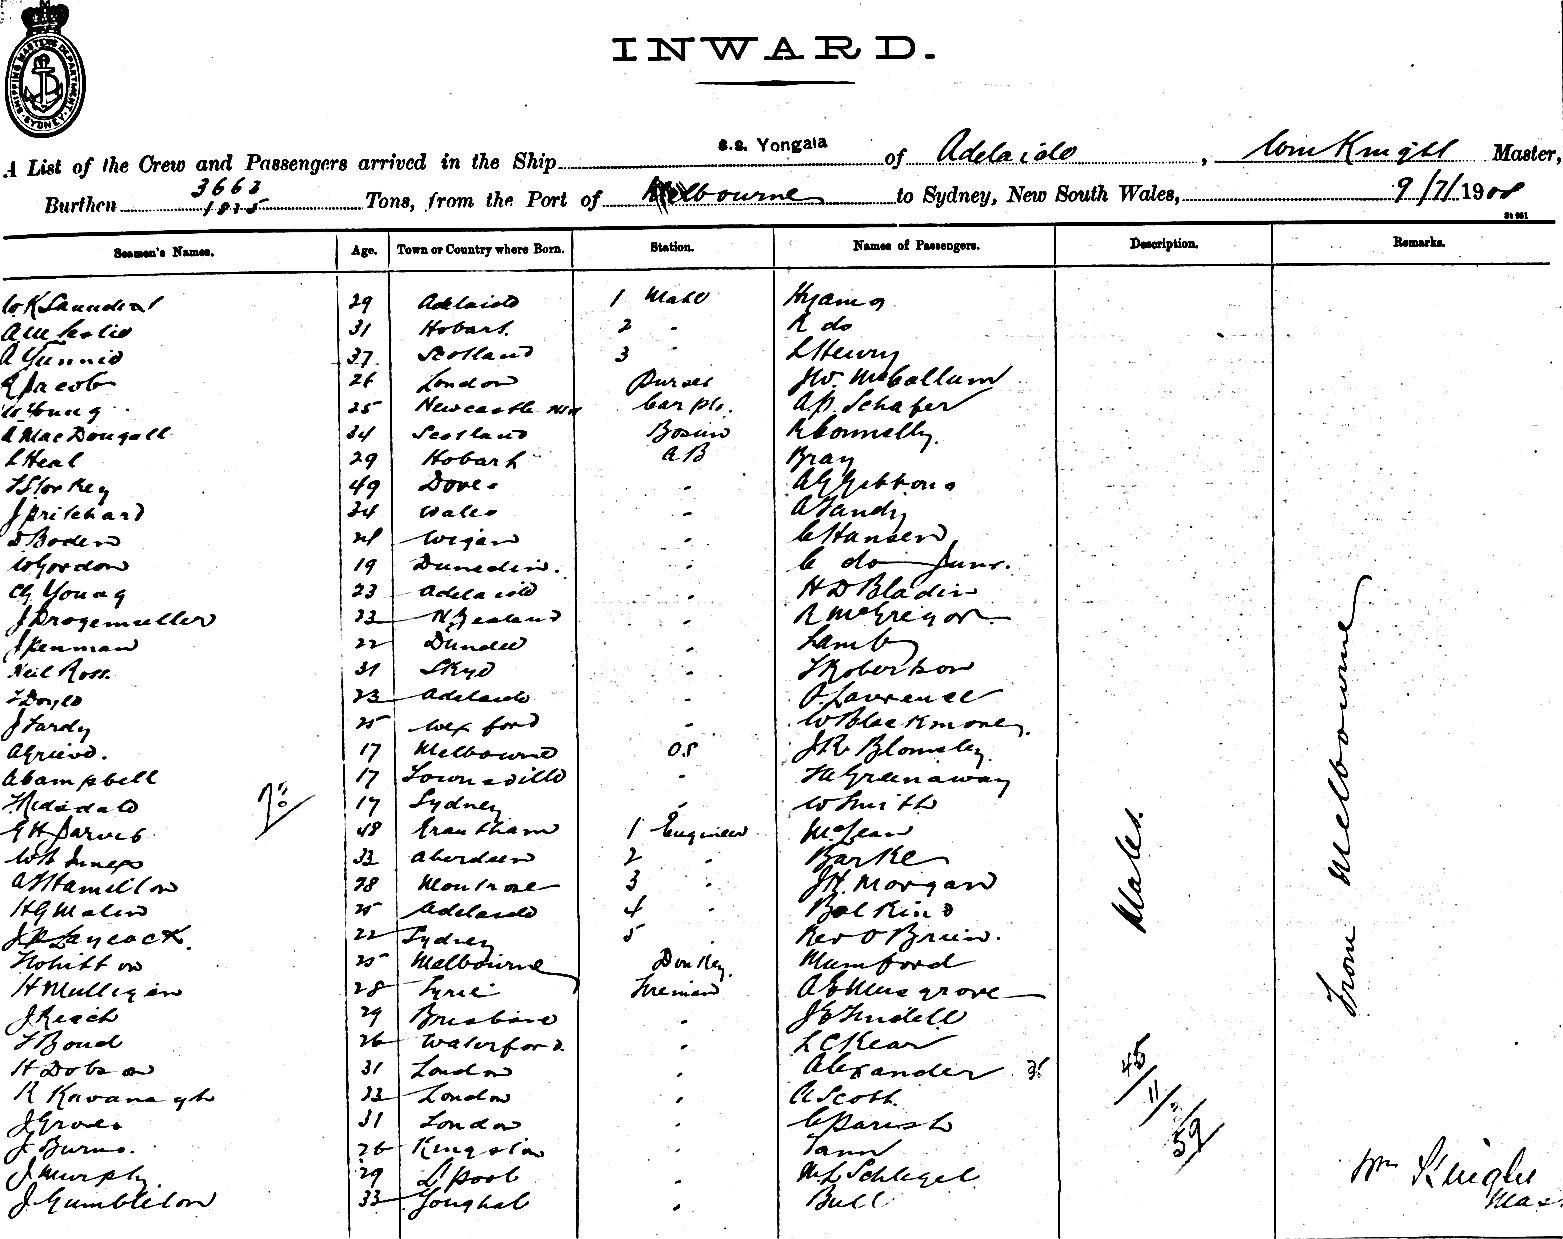 SHIPPING MASTERS DEPARTMENT SYDNEY
INWARD.
A List of the Crew and Passengers arrived in the Ship s.s. Yongala of Adelaide, Wm Knight Master,
Burthen 3663 1825 Tons, from the Port of Melbourne to Sydney, New South Wales, 9/7/1908
Seamen's Names. Age. Town or Country where Born. Station. Names of Passengers. Description. Remarks.
W K Saunders 29 Adelaide 1 Mate Hyams
31 Hobart 2 " R do
37 Scotland 3 " L Henry
Jacob 26 London Purser J W. McCallum
W Young 25 Newcastle Carptr. A P. Schafer
A MacDougall 34 Scotland Bosun R Connelly
L Heal 29 Hobart AB Bray
F Storkey 49 Dover " A G Gibbons
J Pritchard 24 Wales " A Tandy
D Boden Wigan " C Hansen
W Gordon 19 Dunedin. " C do Junr.
C G Young 23 Adelaide " H D Bladin
J Drogemuller 23 N Zealand " R McGregor
J Penman 22 Dundee " Lamb
Neil Ross 31 Skye " F Robertson
F Doyle 23 Adelaide " O Lawrence
J Fardy 25 Wexford " W Blackmore
A Grieve. 17 Melbourne OS J R Blomsley
A Campbell 17 Townsville " Greenaway
17 Sydney " W Smith
G H Jarvis 48 Grantham 1 Engineer McLean
W B Innes 33 Aberdeen 2 " Barke
A F Hamilton 28 Montrose 3 " J H. Morgan
H G Malin 25 Adelaide 4 "
J R Laycock. 22 Sydney 5 " Rev O Brien.
25 Melbourne Donkey. Mumford
H Mulligan 28 Tyrie Fireman A E Musgrove
J Reach 29 Brisbane " J E
F Bond 26 Waterford " L C Kear
H Dobson 31 London " Alexander
R Kavanagh 32 London " A Scott.
J Groves 31 London " C Parish
J Burns. 26 Kingston " Tann
J Murphy 29 L'pool " Schlegel
J Gumbleton 33 Youghal " Bull
Males.
45/11/3/59
From Melbourne
Wm Knight
Mas.